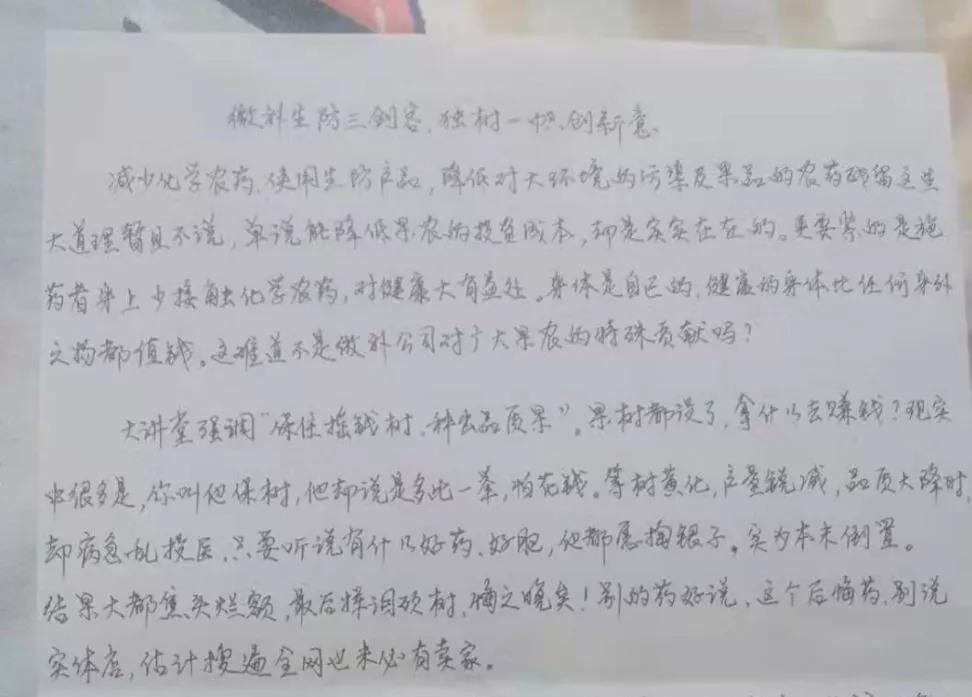 微补生防三剑客,独树一帜创新意。
减少化学农药,使用生防产品,降低对大环境的污染及果品的农药残留这些
大道理暂且不说,单说能降低果农的投资成本,却是实实在在的。更要紧的是施
药者身上少接触化学农药,对健康大有益处。身体是自己的,健康的身体比任何身外
之物都值钱。这难道不是微补公司对广大果农的特殊贡献吗?
大讲堂强调“保住摇钱树,种出品质果”。果树都没了,拿什么去赚钱?现实
中很多是,你叫他保树,他却说是多此一举,怕花钱。等树黄化,产量锐减,品质大降时,
却病急乱投医,只要听说有什么好药、好肥,他都愿掏银子。实为本末倒置。
结果大都焦头烂额,最后择日砍树,悔之晚矣!别的药好说,这个后悔药,别说
实体店,估计搜遍全网也未必有卖家。